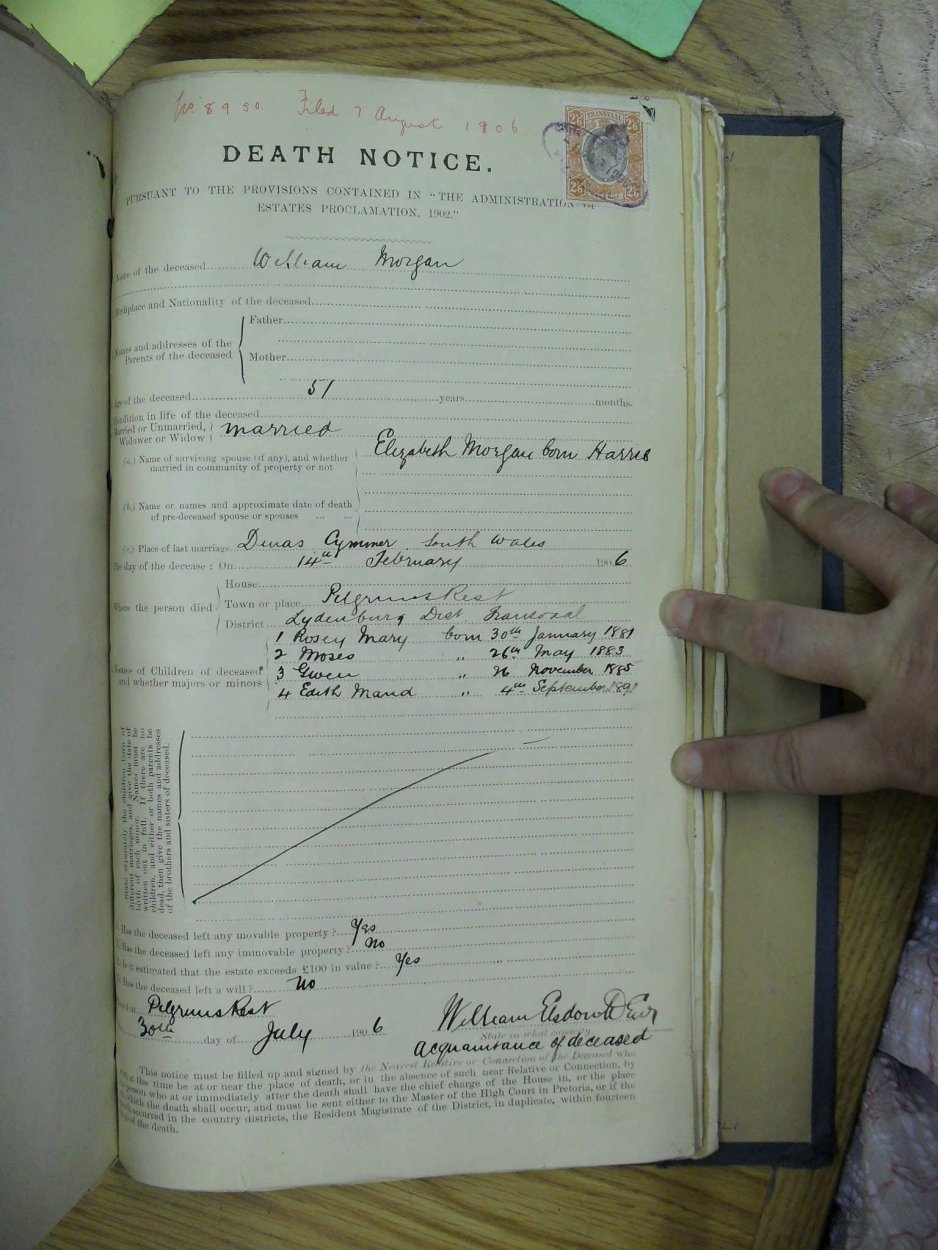 No. 8950. Filed 7 August 1906
TRANSVAAL
2/6 2/6
2/6 2/6
DEATH NOTICE.
PURSUANT TO THE PROVISIONS CONTAINED IN "THE ADMINISTRATION OF
ESTATES PROCLAMATION, 1902."
Name of the deceased William Morgan
Birthplace and Nationality of the deceased
Names and addresses of the Parents of the deceased
Father
Mother
Age of the deceased 51 years months.
Condition in life of the deceased
Married or Unmarried, Widower or Widow married
(a.) Name of surviving spouse (if any), and whether married in community of property or not Elizabeth Morgan born Harris
(b.) Name or names and approximate date of death of pre-deceased spouse or spouses ... ...
(c.) Place of last marriage Dinas Cymmer South Wales
The day of the decease: On 14th February 1906
Where the person died
House
Town or place Pilgrims Rest
District Lydenburg Dist Transvaal
Names of Children of deceased and whether majors or minors
1 Rosey Mary born 30th January 1881
2 Moses " 26th May 1883
3 Gwen " 26 November 1885
4 Edith Maud " 4th September 1891
State separately the children born of
different marriages, and give the date of
birth of each minor. Names must be
written out in full. If there are no
children, and either or both parents be
dead, then give the names and addresses
of the brothers and sisters of deceased.
Has the deceased left any movable property? Yes
Has the deceased left any immovable property? No
Is it estimated that the estate exceeds £100 in value? Yes
Has the deceased left a will? No
Pilgrims Rest
30th day of July 1906
William Elsdon
State in what capacity.
Acquaintance of deceased
This notice must be filled up and signed by the Nearest Relative or Connection of the Deceased who
at the time be at or near the place of death, or in the absence of such near Relative or Connection, by
person who at or immediately after the death shall have the chief charge of the House in, or the place
which the death shall occur, and must be sent either to the Master of the High Court in Pretoria, or if the
occurred in the country districts, the Resident Magistrate of the District, in duplicate, within fourteen
of the death.